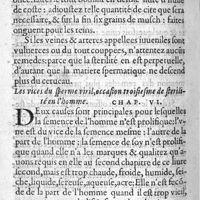 de coste: adioustez telle quantité de cire que sera
necessaire, & sur la fin six grains de musch: faites
onguent pour les reins.
Si les veines & arteres appellees iuueniles sont
vulnerees ou du tout couppees, n'attendez aucuns
remedes: parce que la sterilité en est perpetuelle,
d'autant que la matiere spermatique ne descend
plus du cerueau.
Les vices du sperme viril, occasion troisiesme de sterili-
té en l'homme. CHAP. VI.
DEux causes sont principales pour lesquelles
la semence de l'homme n'est prolifique: l'v-
ne est du vice de la semence mesme: l'autre de la
part de l'homme: la semence de soy n'est prolifi-
que quand elle n'a les marques & qualitez qu'a-
uons requis en elle au second chapitre de ce liure
second, mais est trop chaude, froide, humide, sei-
che, liquide, sereuse, aqueuse, acre: Elle n'est fecõ-
de de la part de l'homme quand il est trop vieil,